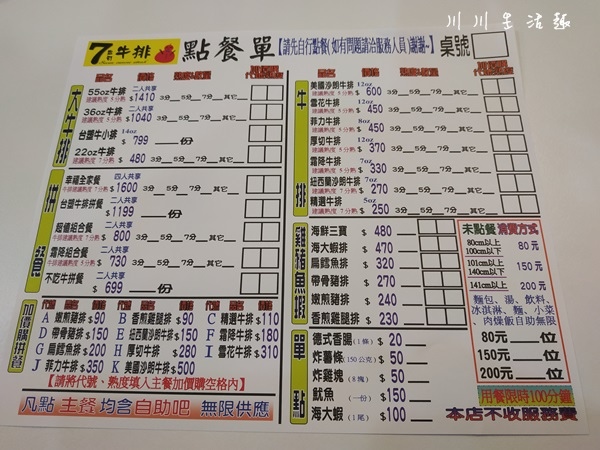 川川生活趣
7 牛排 點餐單【請先自行點餐(如有問題請洽服務人員)謝謝~】桌號
大牛排
55oz牛排 二人共享 $1410 3分 5分 7分 其它
建議熟度 5 分熟
36oz牛排 二人共享 $1040 3分 5分 7分 其它
台塑牛小排 14oz $799 份
22oz牛排 $480 3分 5分 7分 其它
拼餐
幸福全家餐 四人共享 $1600 3分 5分 7分 其它
台塑牛排拼餐 二人共享 $1199 份
超值組合餐 二人共享 $800 3分 5分 7分 其它
霜降組合餐 二人共享 $730 3分 5分 7分 其它
不吃牛拼餐 二人共享 $699 份
加價購拼餐
A 嫩煎豬排 $90 B 香煎雞腿排 $90 C 精選牛排 $110
D 帶骨豬排 $150 E 紐西蘭沙朗牛排 $150 F 霜降牛排 $180
G 扁鱈魚排 $180 H 厚切牛排 $280 I 雪花牛排 $310
J 菲力牛排 $350 K 美國沙朗牛排 $500
【請將代號、熟度填入主餐加價購空格內】
凡點 主餐 均含 自助吧 無限供應
牛排
美國沙朗牛排 12oz $600 3分 5分 7分 其它
雪花牛排 12oz $450 3分 5分 7分 其它
菲力牛排 8oz $450 3分 5分 7分 其它
厚切牛排 12oz $370 3分 5分 7分 其它
霜降牛排 7oz $330 3分 5分 7分 其它
紐西蘭沙朗牛排 7oz $270 3分 5分 7分 其它
精選牛排 5oz $250 3分 5分 7分 其它
雞豬魚蝦
海鮮三寶 $480
海大蝦排 $470
扁鱈魚排 $320
帶骨豬排 $270
嫩煎豬排 $240
香煎雞腿 $230
單點
德式香腸(1條) $20
炸薯條(150公克) $50
炸雞塊(8塊) $50
魷魚(一份) $150
海大蝦(1尾) $100
未點餐 消費方式
80cm以上 100cm以下 80元
101cm以上 140cm以下 150元
141cm以上 200元
麵包、湯、飲料、
冰淇淋、麵、小菜、
肉燥飯自助無限
80元 位
150元 位
200元 位
用餐限時100分鐘
本店不收服務費